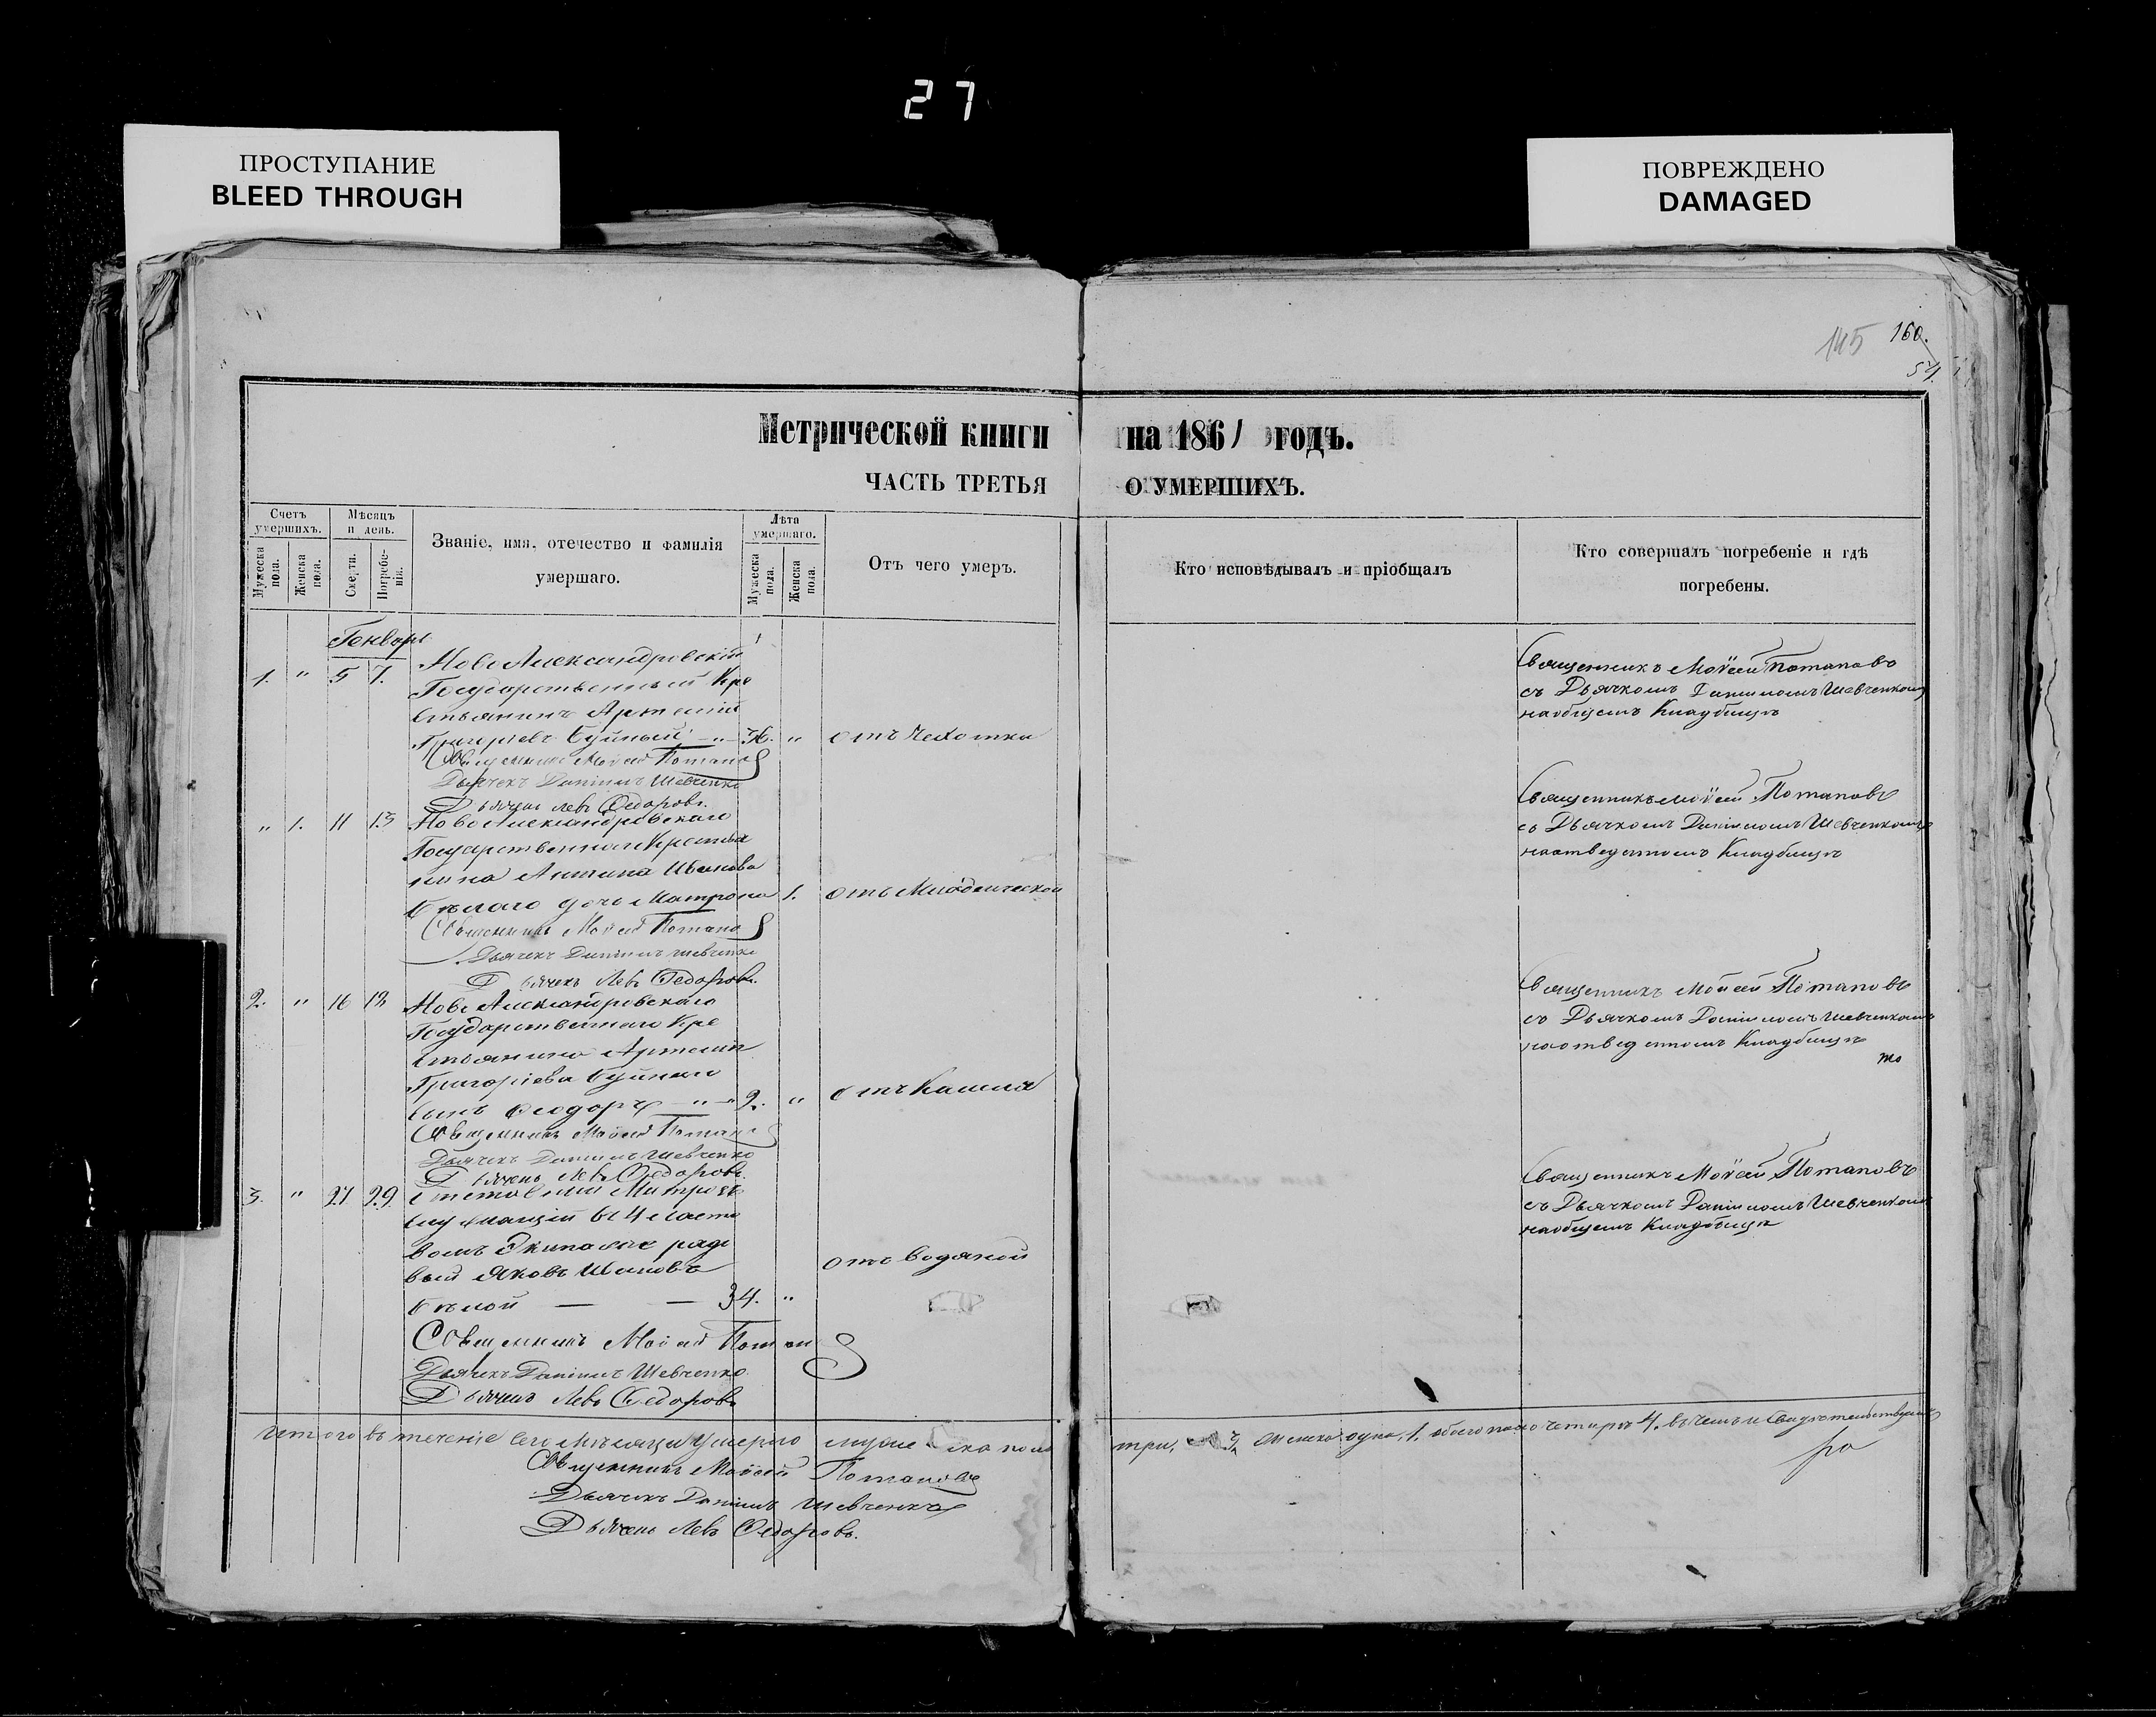 27
ПРОСТУПАНИЕ
BLEED THROUGH
ПОВРЕЖДЕНО
DAMAGED
145 160.
54.
Метрической книги на 1861 годъ.
ЧАСТЬ ТРЕТЬЯ О УМЕРШИХЪ.
Счетъ умершихъ.
Мужеска пола.
Женска пола.
Мѣсяцъ и день.
Смерти.
Погребенія.
Званіе, имя, отечество и фамилія
умершаго.
Лѣта умершаго.
Мужеска пола.
Женска пола.
Отъ чего умеръ.
Кто исповѣдывалъ и пріобщалъ
Кто совершалъ погребеніе и гдѣ
погребены.
Генварь
1. " 5 7. НовоАлександровскій
Государственный Кре
стьянинъ Артемій
Григоріевъ Буйный " отъ Чахотки
Священникъ Моѵсей Потаповъ
Дьячекъ Даніилъ Шевченко
Дьячекъ Левъ Ѳедоровъ.
Священникъ Моѵсей Потаповъ
съ Дьячкомъ Даніиломъ Шевченкомъ
на общемъ Кладбищѣ
" 1. 11 13 НовоАлександровскаго
Государственнаго Крестья
нина Антипа Иванова
Бѣлаго дочь Матрона 1. отъ Младенческой
Священникъ Моѵсей Потаповъ
Дьячекъ Даніилъ Шевченко
Дьячекъ Левъ Ѳедоровъ.
Священникъ Моѵсей Потаповъ
съ Дьячкомъ Даніиломъ Шевченкомъ
на отведенномъ Кладбищѣ
2. " 16 18 НовоАлександровскаго
Государственнаго Кре
стьянина Артемія
Григоріева Буйнаго
сынъ Ѳеодоръ — " — 2. " отъ Кашля
Священникъ Моѵсей Потаповъ
Дьячекъ Даніилъ Шевченко
Дьячекъ Левъ Ѳедоровъ.
Священникъ Моѵсей Потаповъ
съ Дьячкомъ Даніиломъ Шевченкомъ
на отведенномъ Кладбищѣ
то
3. " 27 29.
служащій въ 4 ластовомъ Экипажѣ рядо
вый Яковъ Ивановъ
Бѣлой — — 34. " отъ водяной
Священникъ Моѵсей Потаповъ
Дьячекъ Даніилъ Шевченко.
Дьячекъ Левъ Ѳедоровъ
Священникъ Моѵсей Потаповъ
съ Дьячкомъ Даніиломъ Шевченкомъ
на общемъ Кладбищѣ
Итого въ теченіе сего мѣсяца умерло мужеска пола три, 3, женска одна, 1. обоего пола четыре 4. въ чемъ и свидѣтельствуемъ
Священникъ Моѵсей Потаповъ
Дьячекъ Даніилъ Шевченко
Дьячекъ Левъ Ѳедоровъ.